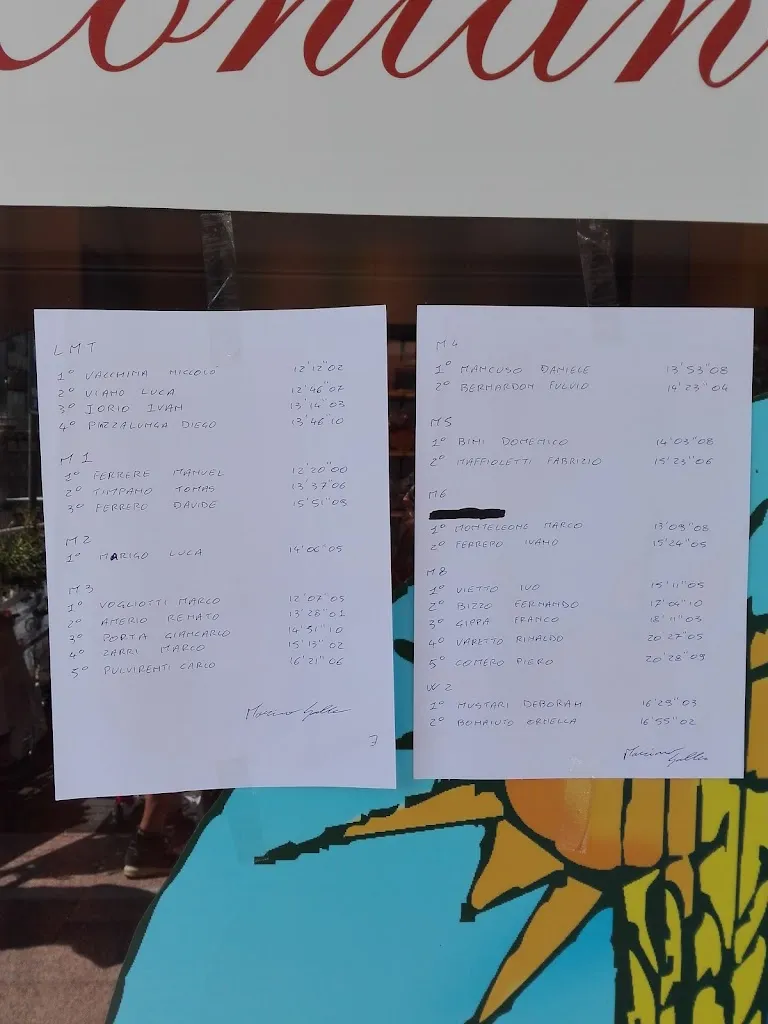 LMT
1° VACCHINA NICCOLO' 12'12"02
2° VIANO LUCA 12'46"07
3° IORIO IVAN 13'14"03
4° PIAZZALUNGA DIEGO 13'46"10
M1
1° FERRERE MANUEL 12'20"00
2° TIMPANO TOMAS 13'37"06
3° FERRERO DAVIDE 15'51"09
M2
1° MARIGO LUCA 14'06"05
M3
1° VOGLIOTTI MARCO 12'07"05
2° AMERIO RENATO 13'28"01
3° PORTA GIANCARLO 14'51"10
4° ZARRI MARCO 15'13"02
5° PULVIRENTI CARLO 16'21"06
M4
1° MANCUSO DANIELE 13'53"08
2° BERNARDON FULVIO 14'23"04
M5
1° BINI DOMENICO 14'03"08
2° MAFFIOLETTI FABRIZIO 15'23"06
M6
1° MONTELEONE MARCO 13'09"08
2° FERRERO IVANO 15'24"05
M8
1° VIETTO IVO 15'11"05
2° BIZZO FERNANDO 17'09"10
3° GIPPA FRANCO 18'11"03
4° VARETTO RINALDO 20'27"05
5° COMERO PIERO 20'28"09
W2
1° MUSTARI DEBORAH 16'29"03
2° BONAIUTO ORNELLA 16'55"02